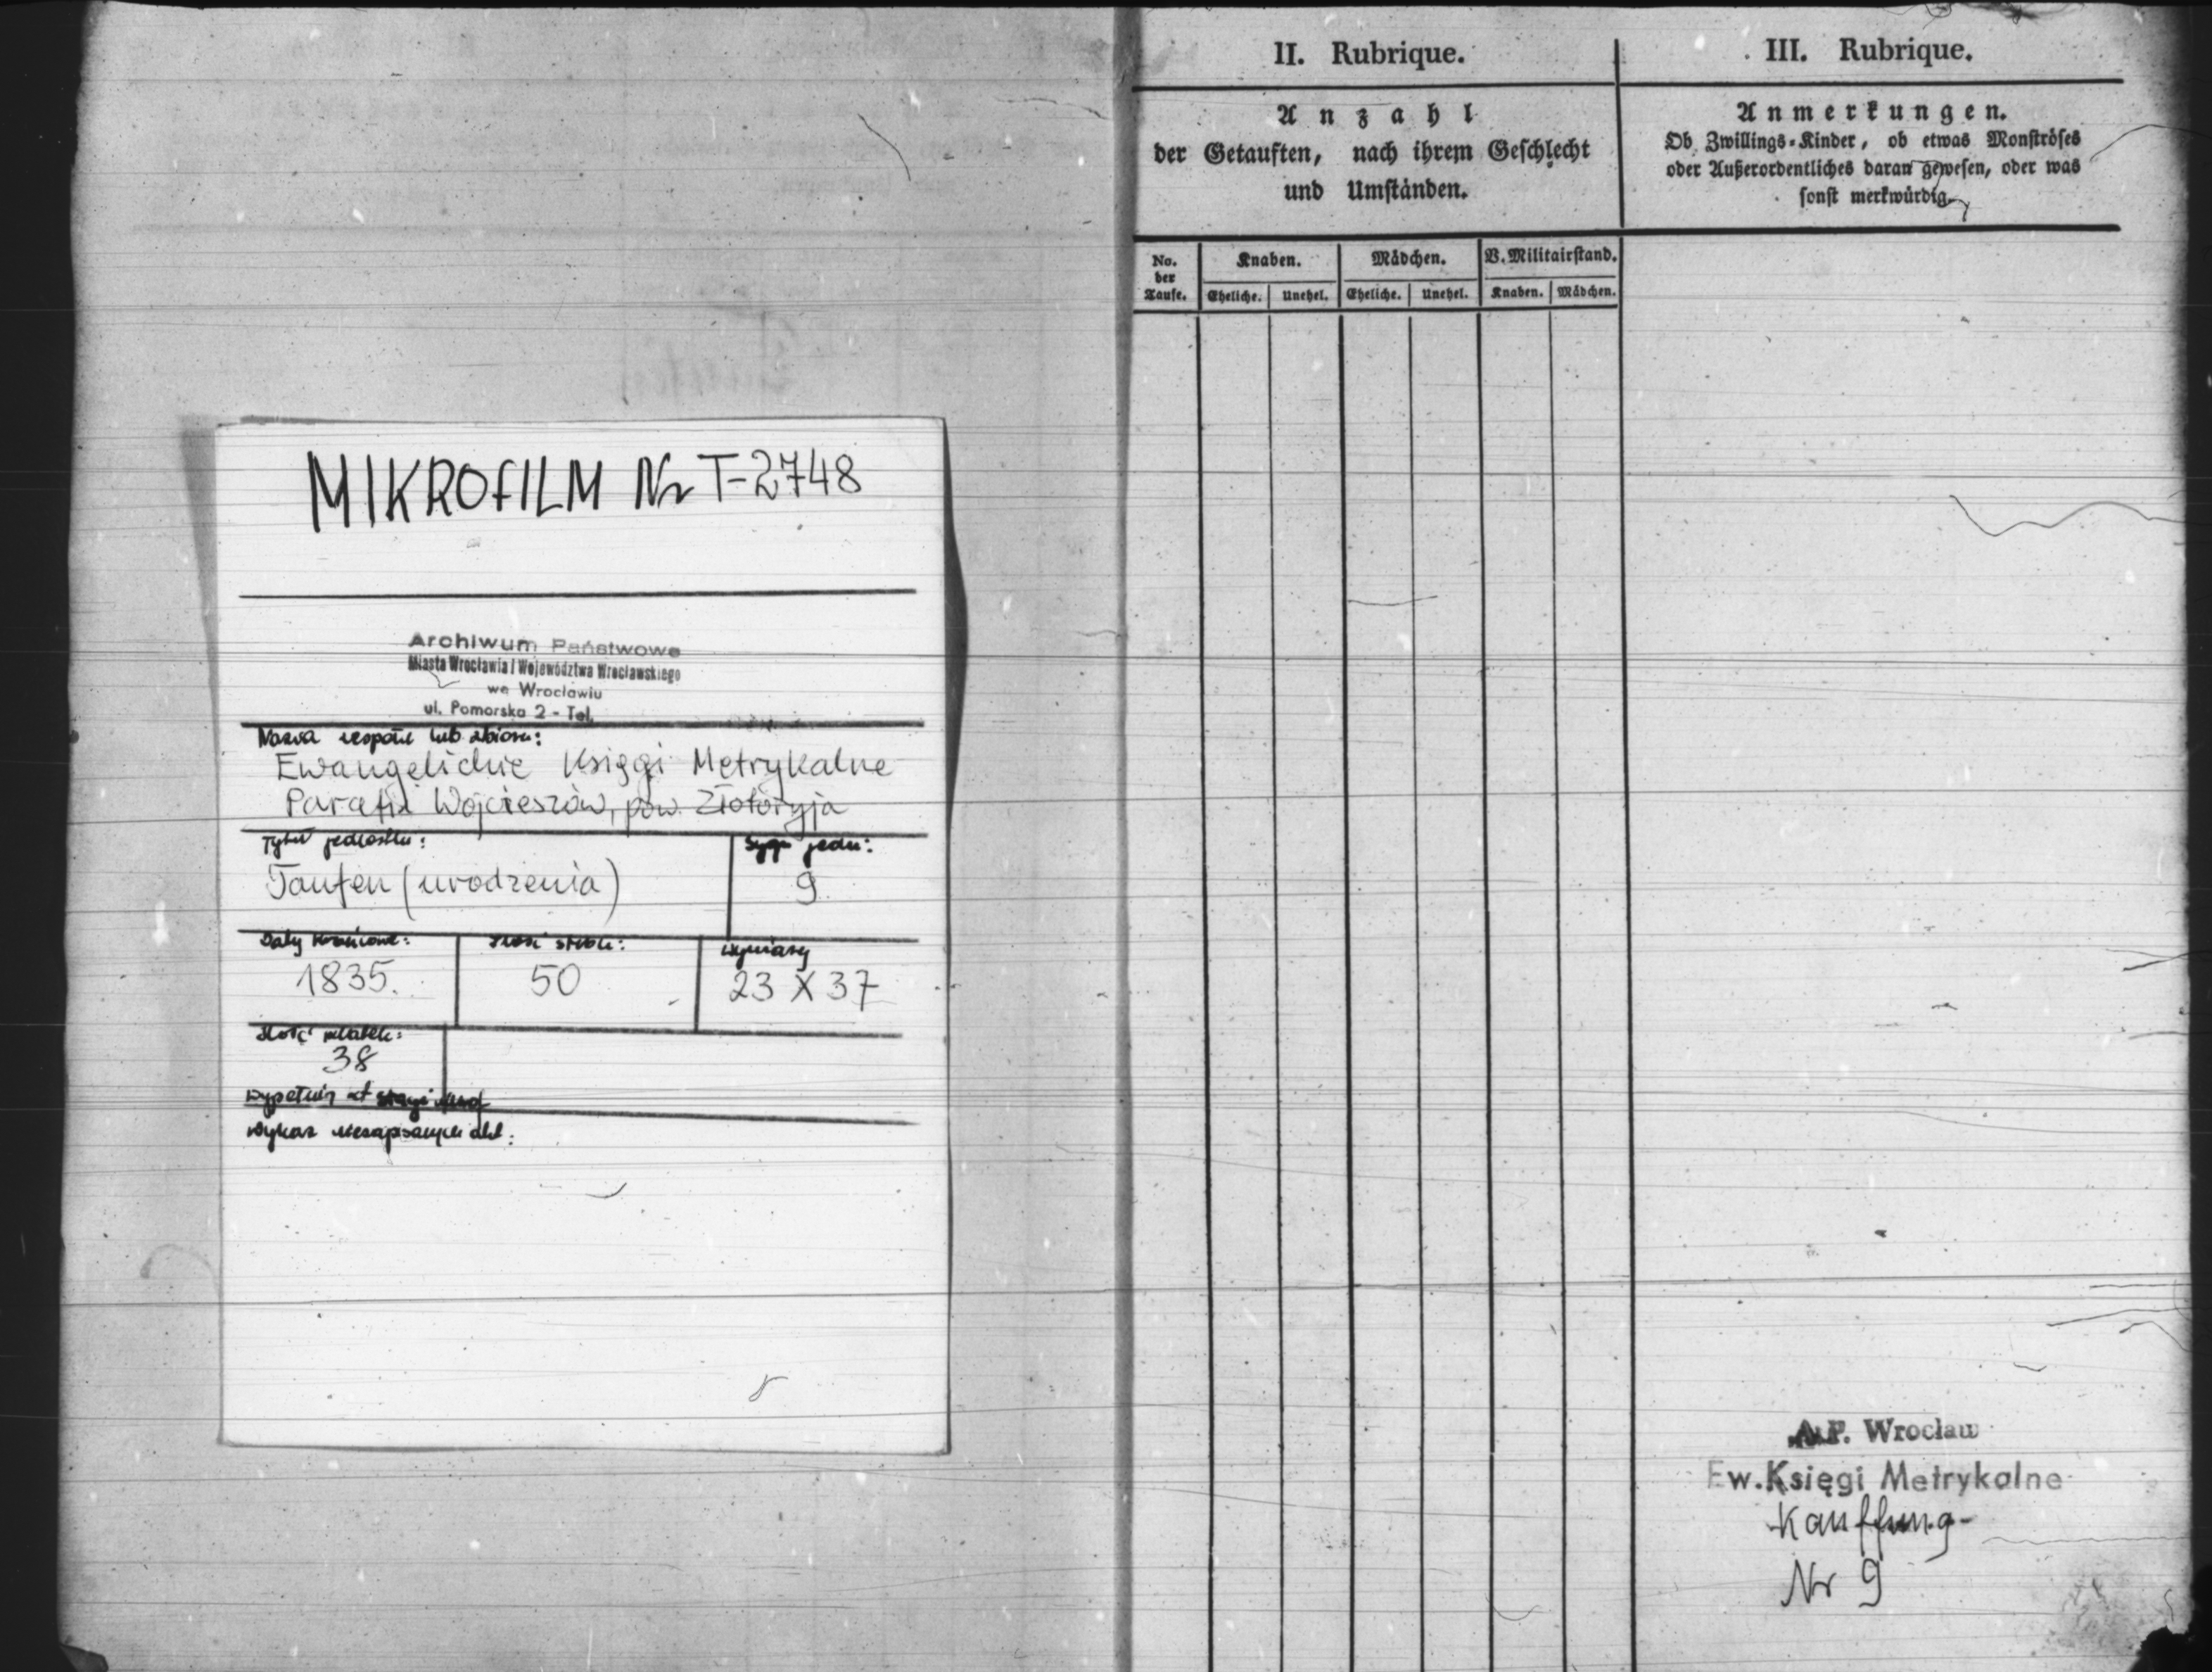 MIKROFILM Nr T-2748
Archiwum Państwowe
Miasta Wrocławia i Województwa Wrocławskiego
we Wrocławiu
ul. Pomorska 2 - Tel.
Nazwa zespołu lub zbioru:
Ewangelickie Księgi Metrykalne
Parafii Wojcieszów, pow. Złotoryja
Tytuł jednostki:
Sygn jedn:
Taufen (urodzenia)
9
Daty krańcowe:
Ilość stron:
Wymiary
1835.
50
23 X 37
Ilość klatek:
38
Wykaz
8
II. Rubrique.
Anzahl
der Getauften, nach ihrem Geschlecht
und Umständen.
No. der Taufe.
Knaben.
Mädchen.
V. Militairstand.
Eheliche. Unehel. Eheliche. Unehel. Knaben. Mädchen.
III. Rubrique.
Anmerkungen.
Ob Zwillings-Kinder, ob etwas Monströses
oder Außerordentliches daran gewesen, oder was
sonst merkwürdig.
A.P. Wrocław
Ew. Księgi Metrykalne
Kauffung
Nr 9